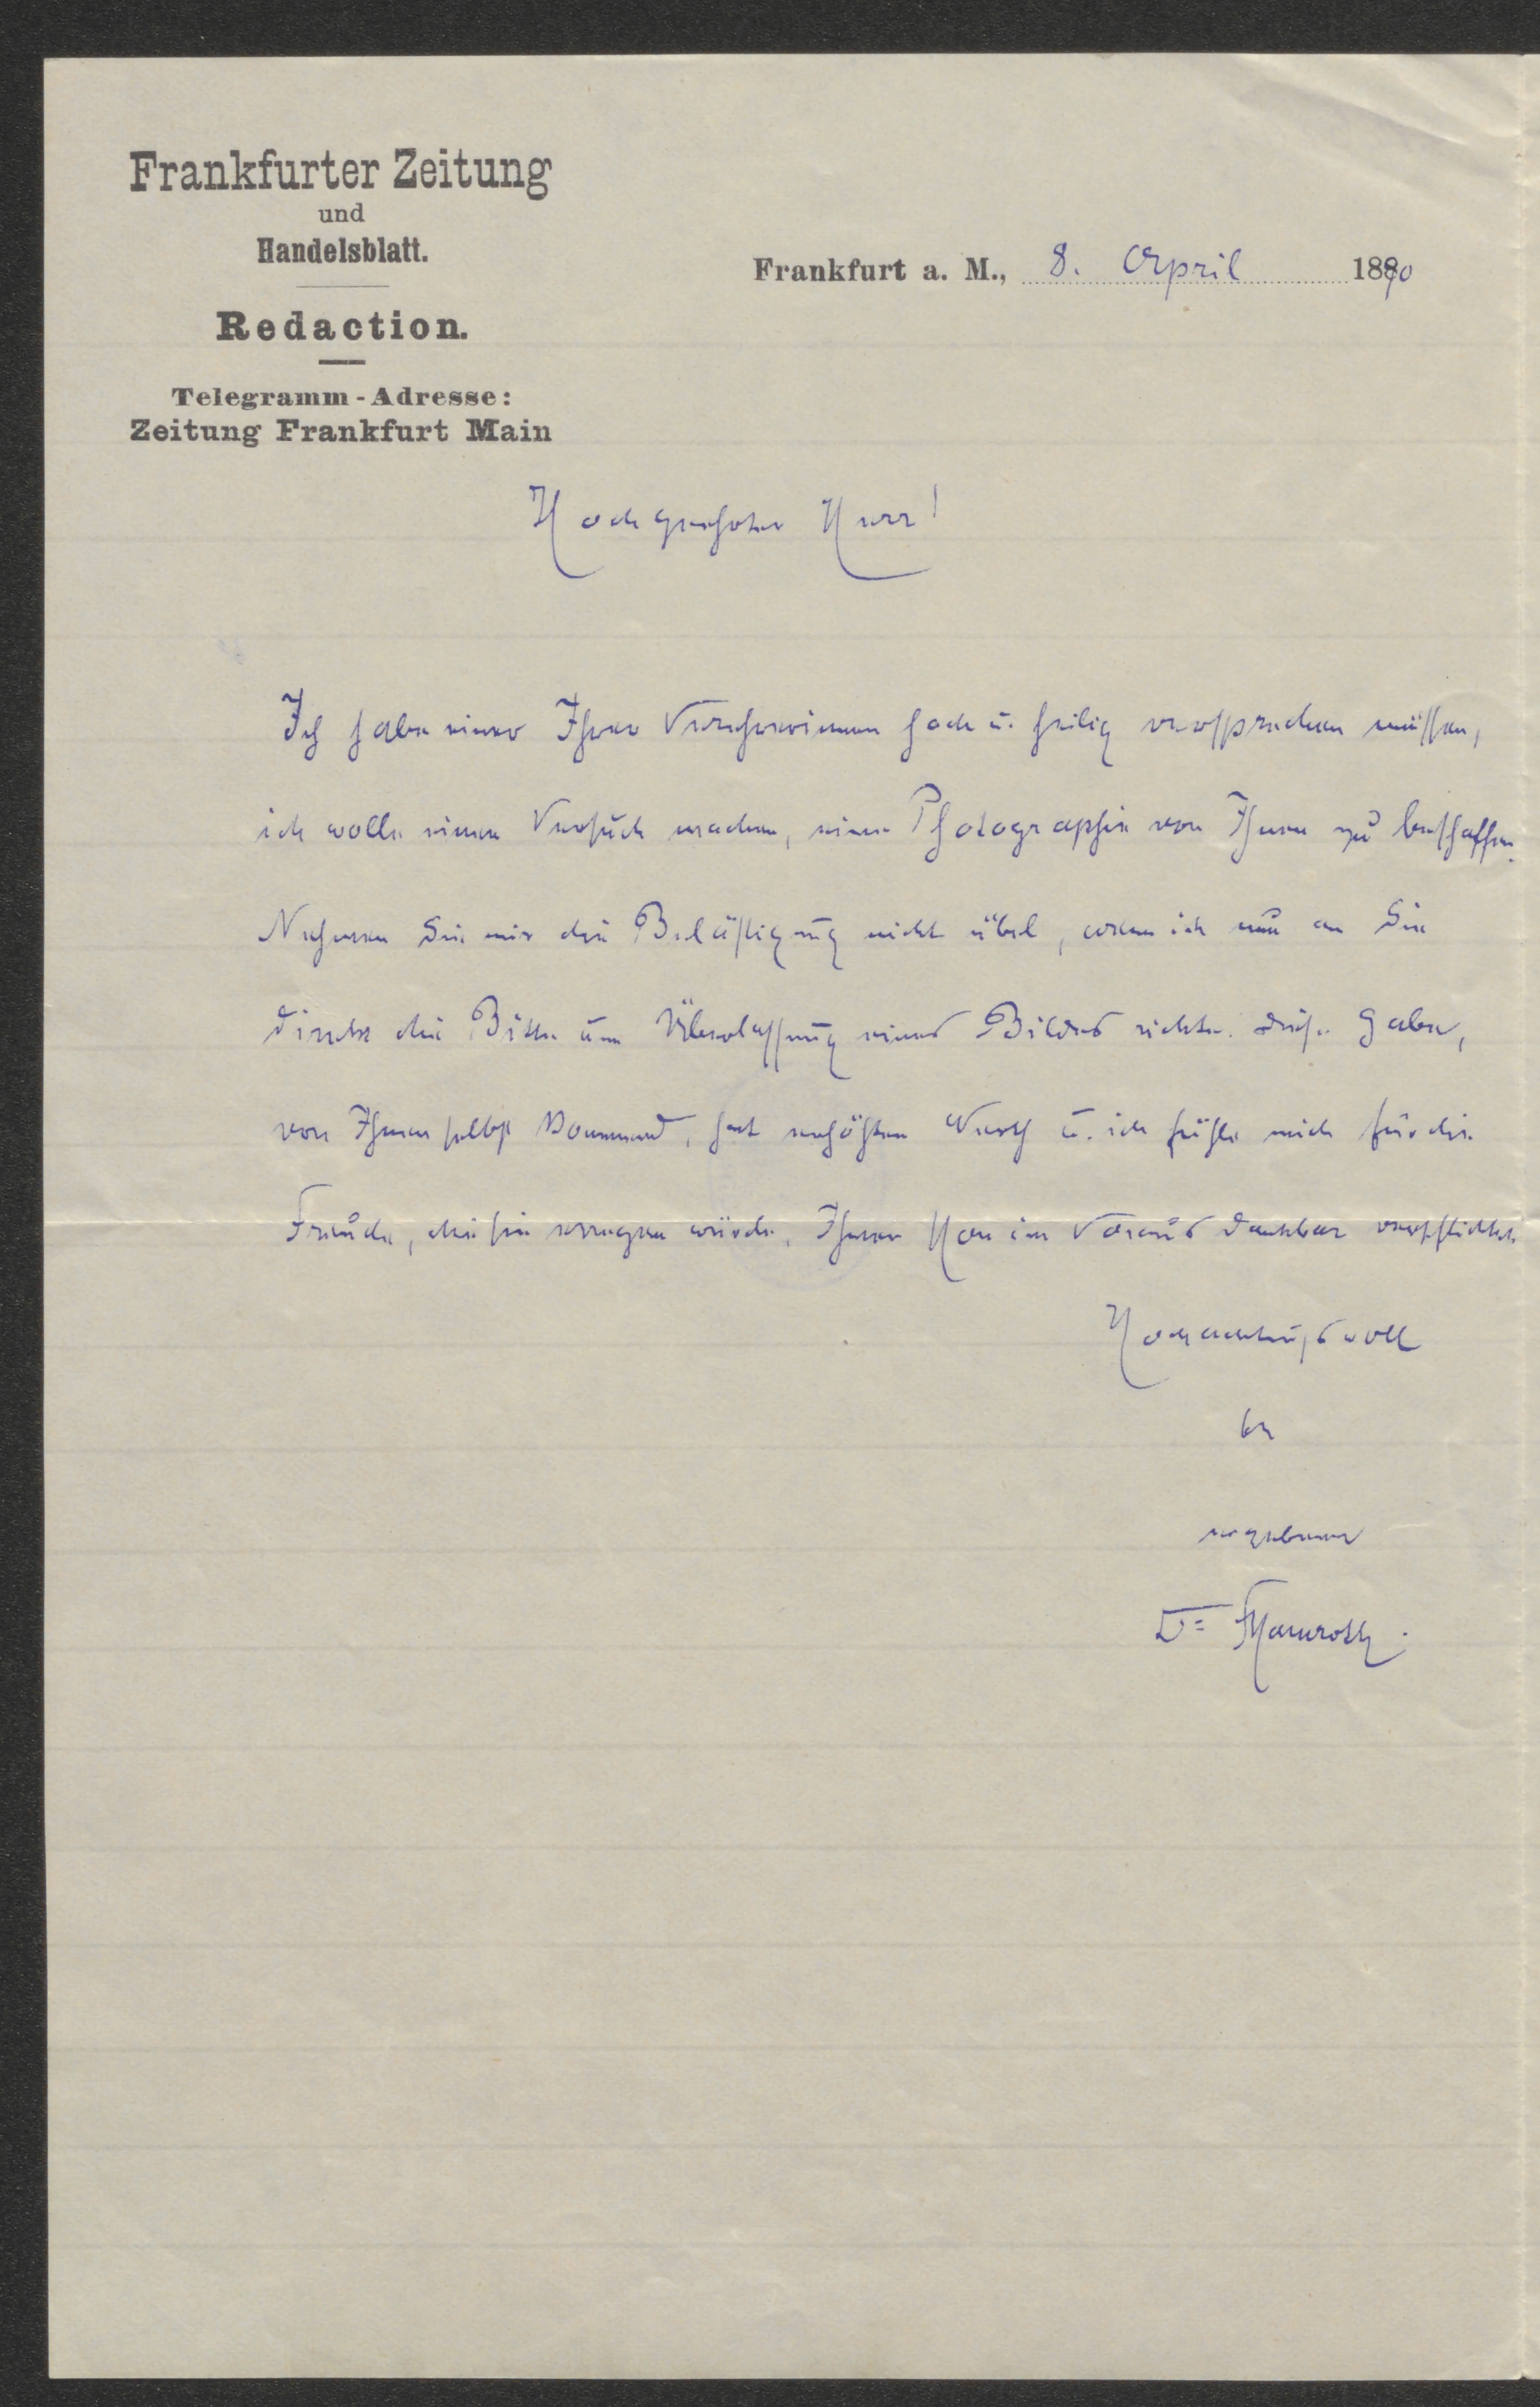 Frankfurter Zeitung
und
Handelsblatt.
Redaction.
Telegramm-Adresse:
Zeitung Frankfurt Main
Frankfurt a. M., 8. April 1890
Hochgeehrter Herr!
Ich habe einer Ihrer Verehrerinnen hoch u. heilig versprechen müssen,
ich wolle einen Versuch machen, eine Photographie von Ihnen zu beschaffen.
Nehmen Sie mir die Belästigung nicht übel, wenn ich nun an Sie
direkt die Bitte um Überlassung eines Bildes richte. Diese Gabe,
von Ihnen selbst kommend, hat erhöhten Werth u. ich fühle mich für die
Freude, die sie erregen würde, Ihnen schon im Voraus dankbar verpflichtet
Hochachtungsvoll
Ihr
ergebener
Dr FMamroth.